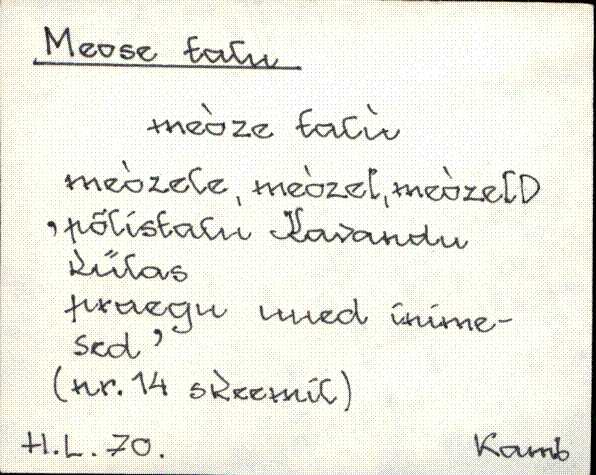 Meose talu
meòze talù
meòzele, meòzel, meòzelD
‚põlistalu Kavandu
külas
praegu uued inime-
sed’
(nr. 14 skeemil)
H.L. 70.
Kamb